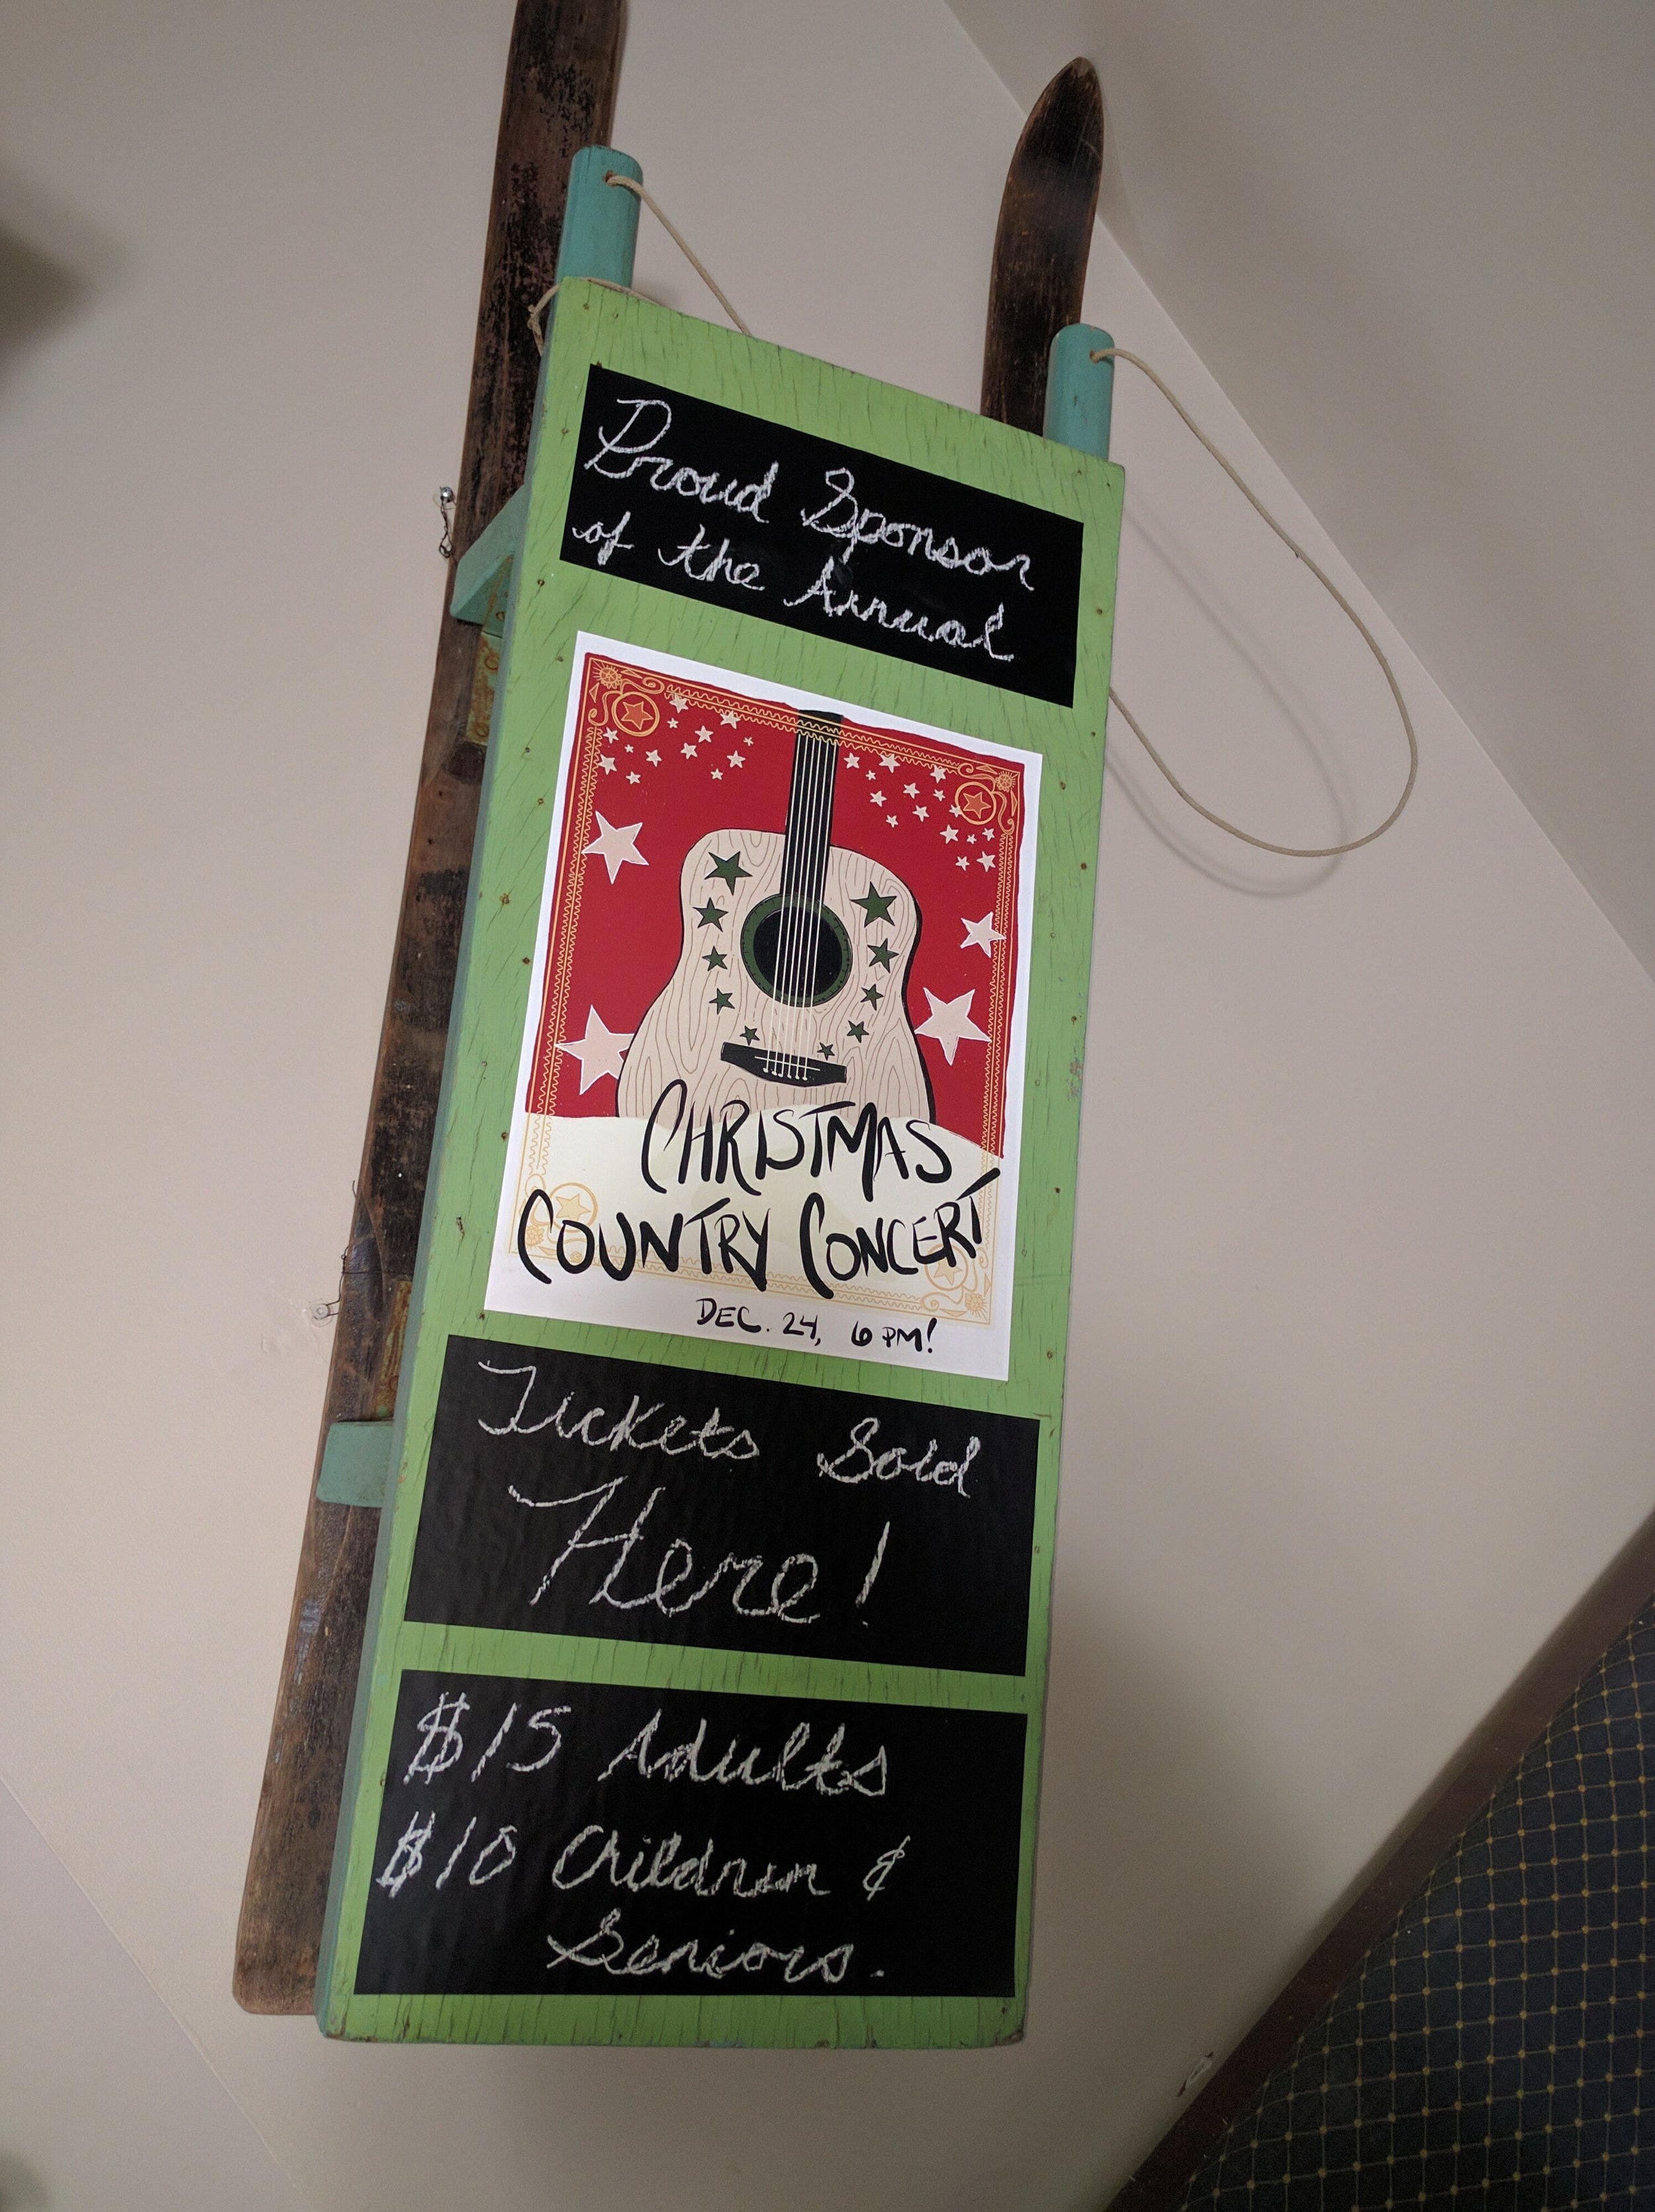 Proud Sponsor
of the Annual
CHRISTMAS
COUNTRY CONCERT
DEC. 24, 6 PM!
Tickets Sold
Here!
$15 Adults
$10 Children &
Seniors.